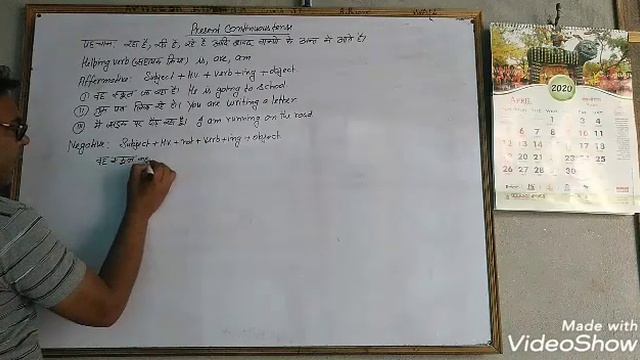 Present Continuous tense
पहचान: रहा है, रही है, रहे है आदि शब्द वाक्यो के अन्त मे आते है।
Helping verb (सहायक क्रिया) is, are, am
Affermative: Subject + Hv + verb+ing + object
(i) वह स्कूल जा रहा है। He is going to school
(ii) तुम पत्र लिख रहे हो। You are writing a letter
(iii) मै सड़क पर दौड़ रहा हूँ। I am running on the road
Negative: Subject + Hv + not + verb+ing + object
वह स्कूल
APRIL
2020
1 2 3 4
6 7 8 9 10 11
12 13 14 15 16 17 18
19 20 21 22 23 24 25
26 27 28 29 30
Made with
VideoShow